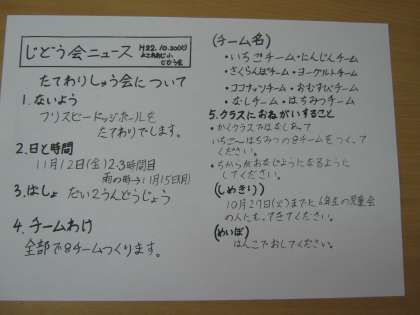 じどう会ニュース
H22.10.20(水)
じどう会
たてわりしゅう会について
1.ないよう
フリスビードッジボールを
たてわりでします。
2.日と時間
11月12日(金)2・3時間目
雨の時→11月15日(月)
3.ばしょ だい2うんどうじょう
4.チームわけ
全部で8チームつくります。
(チーム名)
・いちごチーム・にんじんチーム
・さくらんぼチーム・ヨーグルトチーム
・ココナッツチーム・おむすびチーム
・なしチーム・はちみつチーム
5.クラスにおねがいすること
・かくクラスではなしあって
いちご〜はちみつの8チームをつくって
ください。
・ちからがおなじようになるように
してください。
(しめきり)
10月27日(水)までに、6年生の児童会
の人にもってきてください。
(めいぼ)
はんこでおしてください。